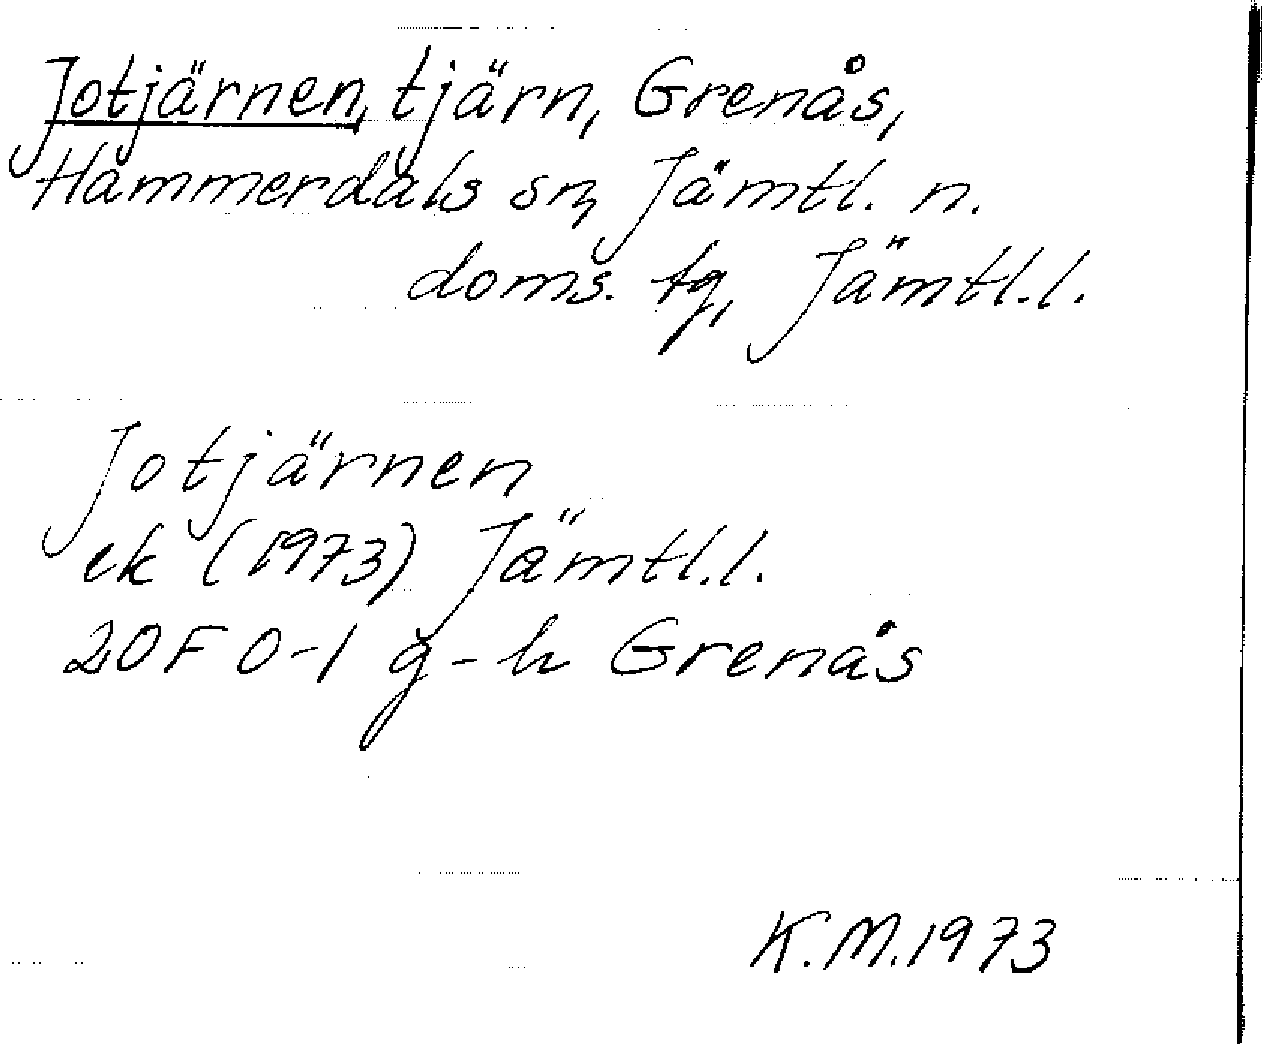 Jotjärnen, tjärn, Grenås,
Hammerdals sn, Jämtl. n.
doms. tg, Jämtl.l.
Jotjärnen
ek (1973) Jämtl.l.
20F 0-1 g-h Grenås
K.M.1973